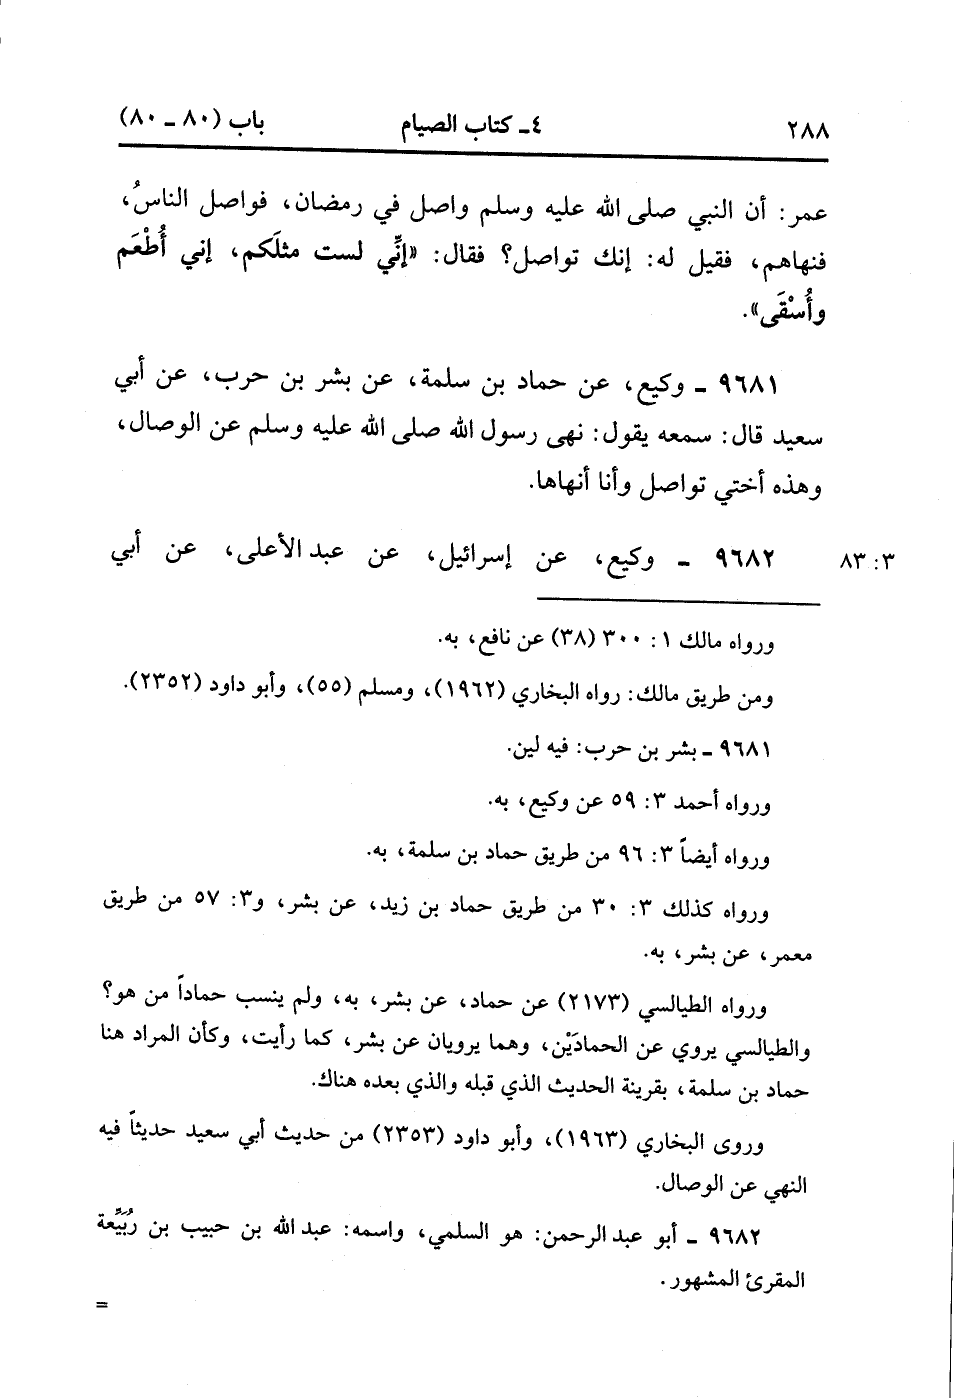 ٢٨٨ ٤ ـ كتاب الصيام باب (٨٠ ـ ٨٠)
عمر: أن النبي صلى الله عليه وسلم واصل في رمضان، فواصل الناسُ،
فنهاهم، فقيل له: إنك تواصل؟ فقال: «إنِّي لست مثلَكم، إني أُطْعَم
وأُسْقَى».
٩٦٨١ ـ وكيع، عن حماد بن سلمة، عن بشر بن حرب، عن أبي
سعيد قال: سمعه يقول: نهى رسول الله صلى الله عليه وسلم عن الوصال،
وهذه أختي تواصل وأنا أنهاها.
٣: ٨٣ ٩٦٨٢ ـ وكيع، عن إسرائيل، عن عبد الأعلى، عن أبي
ورواه مالك ١: ٣٠٠ (٣٨) عن نافع، به.
ومن طريق مالك: رواه البخاري (١٩٦٢)، ومسلم (٥٥)، وأبو داود (٢٣٥٢).
٩٦٨١ ـ بشر بن حرب: فيه لين.
ورواه أحمد ٣: ٥٩ عن وكيع، به.
ورواه أيضاً ٣: ٩٦ من طريق حماد بن سلمة، به.
ورواه كذلك ٣: ٣٠ من طريق حماد بن زيد، عن بشر، و٣: ٥٧ من طريق
معمر، عن بشر، به.
ورواه الطيالسي (٢١٧٣) عن حماد، عن بشر، به، ولم ينسب حماداً من هو؟
والطيالسي يروي عن الحمادَيْن، وهما يرويان عن بشر، كما رأيت، وكأن المراد هنا
حماد بن سلمة، بقرينة الحديث الذي قبله والذي بعده هناك.
وروى البخاري (١٩٦٣)، وأبو داود (٢٣٥٣) من حديث أبي سعيد حديثاً فيه
النهي عن الوصال.
٩٦٨٢ ـ أبو عبد الرحمن: هو السلمي، واسمه: عبد الله بن حبيب بن رُبَيِّعة
المقرئ المشهور.
=